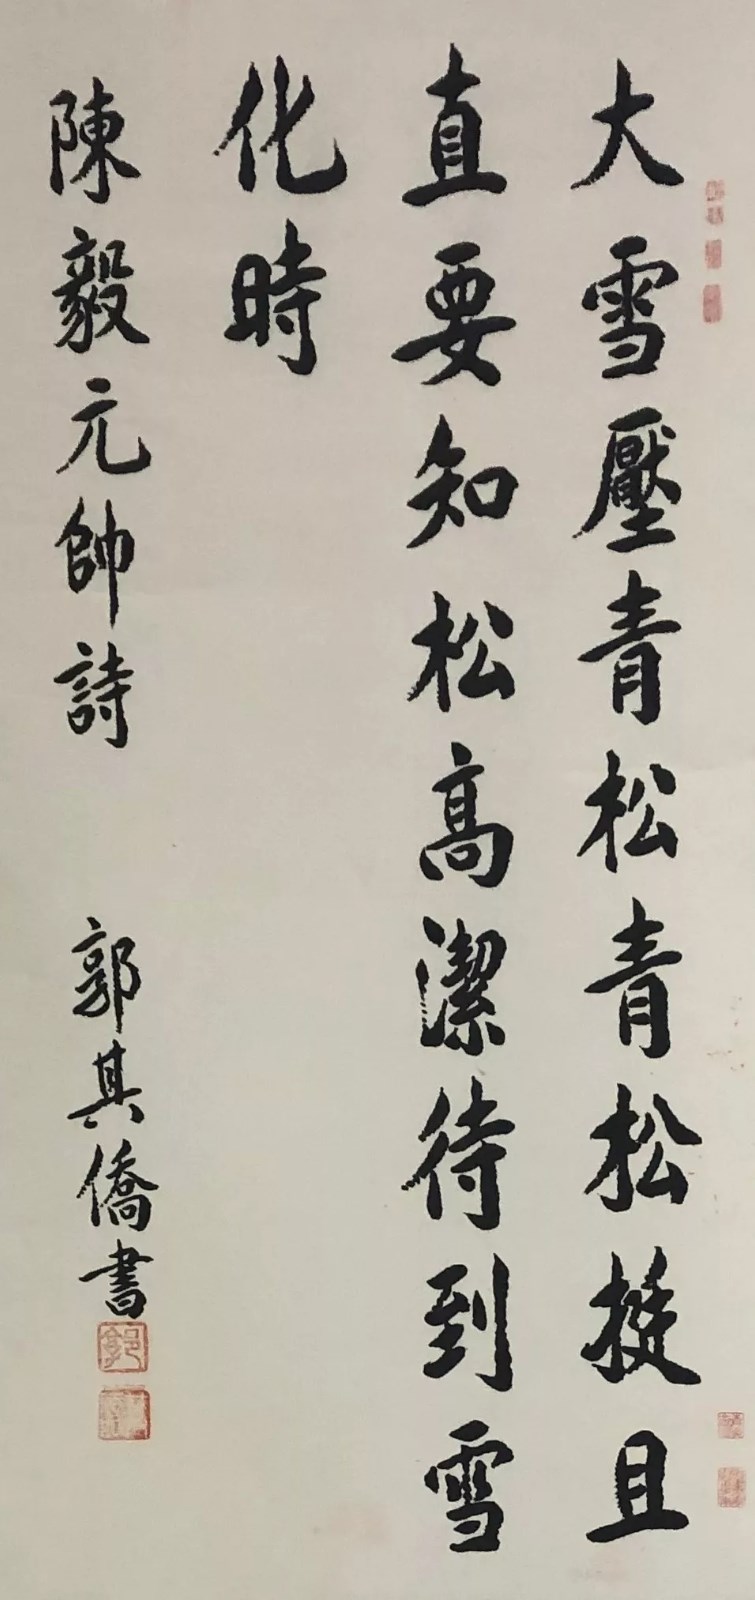 大雪壓青松青松挺且
直要知松高潔待到雪
化時
陳毅元帥詩
郭其僑書
郭